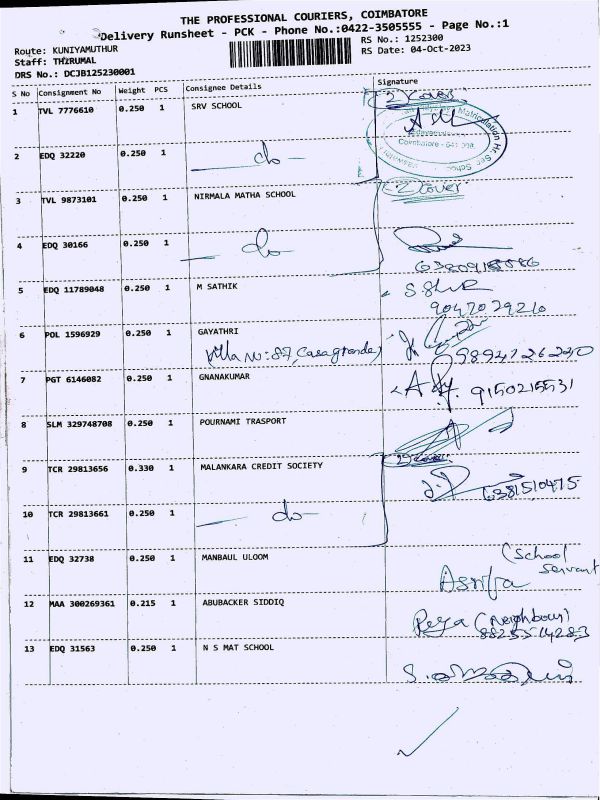 THE PROFESSIONAL COURIERS, COIMBATORE
Delivery Runsheet - PCK - Phone No.:0422-3505555 - Page No.:1
Route: KUNIYAMUTHUR
Staff: THIRUMAL
DRS No.: DCJB125230001
RS No.: 1252300
RS Date: 04-Oct-2023
S No Consignment No Weight PCS Consignee Details Signature
1 TVL 7776610 0.250 1 SRV SCHOOL 2 Cover
Matriculation Hr. Sec. School
Coimbatore - 641 008.
2 EDQ 32220 0.250 1 — do —
3 TVL 9873101 0.250 1 NIRMALA MATHA SCHOOL 2 Cover
4 EDQ 30166 0.250 1 — do —
5 EDQ 11789048 0.250 1 M SATHIK
9047029210
6 POL 1596929 0.250 1 GAYATHRI
Villa No: 87, Casagrande 9894726240
7 PGT 6146082 0.250 1 GNANAKUMAR 9150215531
8 SLM 329748708 0.250 1 POURNAMI TRASPORT
9 TCR 29813656 0.330 1 MALANKARA CREDIT SOCIETY 2 Cover
6381510475
10 TCR 29813661 0.250 1 — do —
11 EDQ 32738 0.250 1 MANBAUL ULOOM (School
Servant
Asnifa
12 MAA 300269361 0.215 1 ABUBACKER SIDDIQ (Neighbour)
8825514283
13 EDQ 31563 0.250 1 N S MAT SCHOOL